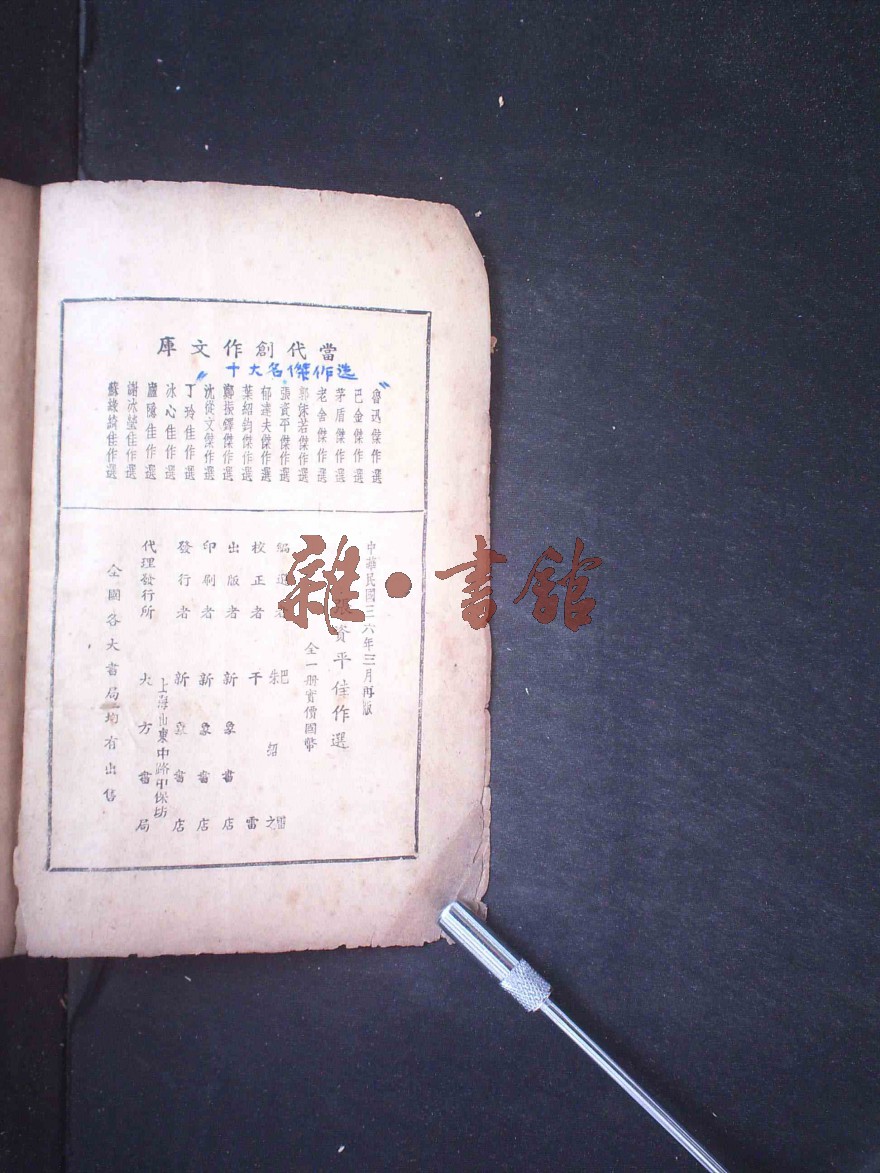 當代創作文庫
"十大名傑作选"
魯迅傑作選
巴金傑作選
茅盾傑作選
老舍傑作選
郭沫若傑作選
張資平傑作選
郁達夫傑作選
葉紹鈞傑作選
鄭振鐸傑作選
沈從文傑作選
丁玲佳作選
冰心佳作選
廬隱佳作選
謝冰瑩佳作選
蘇綠漪佳作選
中華民國三六年三月再版
張資平佳作選
全一冊實價國幣
編選者 巴雷 朱紹之
校正者 干雷
出版者 新象書店
印刷者 新象書店
發行者 新象書店
上海山東中路中保坊
代理發行所 大方書局
全國各大書局均有出售
雜·書館